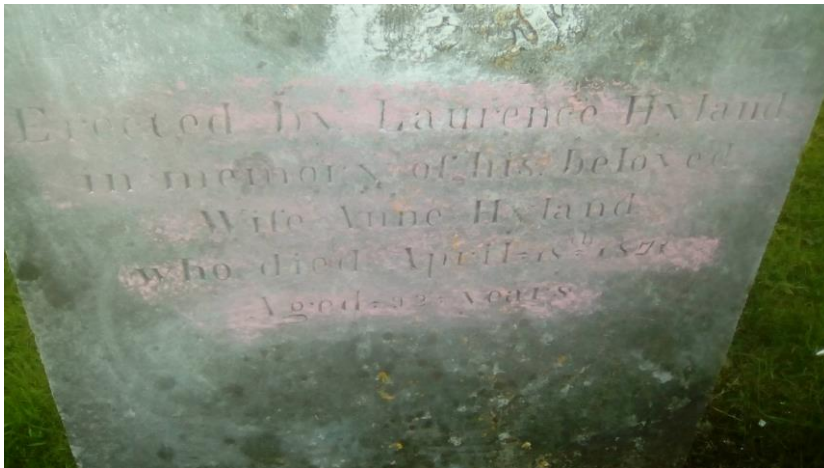 Erected by Laurence Hyland
in memory of his beloved
Wife Anne Hyland
who died April 18th 1871
Aged 32 years